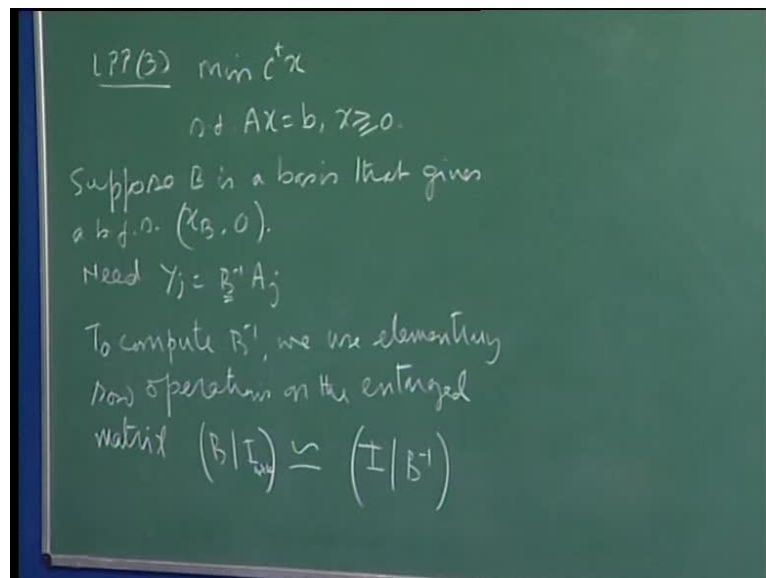 LPP(3) min cᵗx
s.t. Ax=b, x≥0.
Suppose B is a basis that gives
a b.f.s. (x_B, 0).
Need Y_j = B⁻¹ A_j
To compute B⁻¹, we use elementary
row operations on the enlarged
matrix (B|I) ≃ (I|B⁻¹)